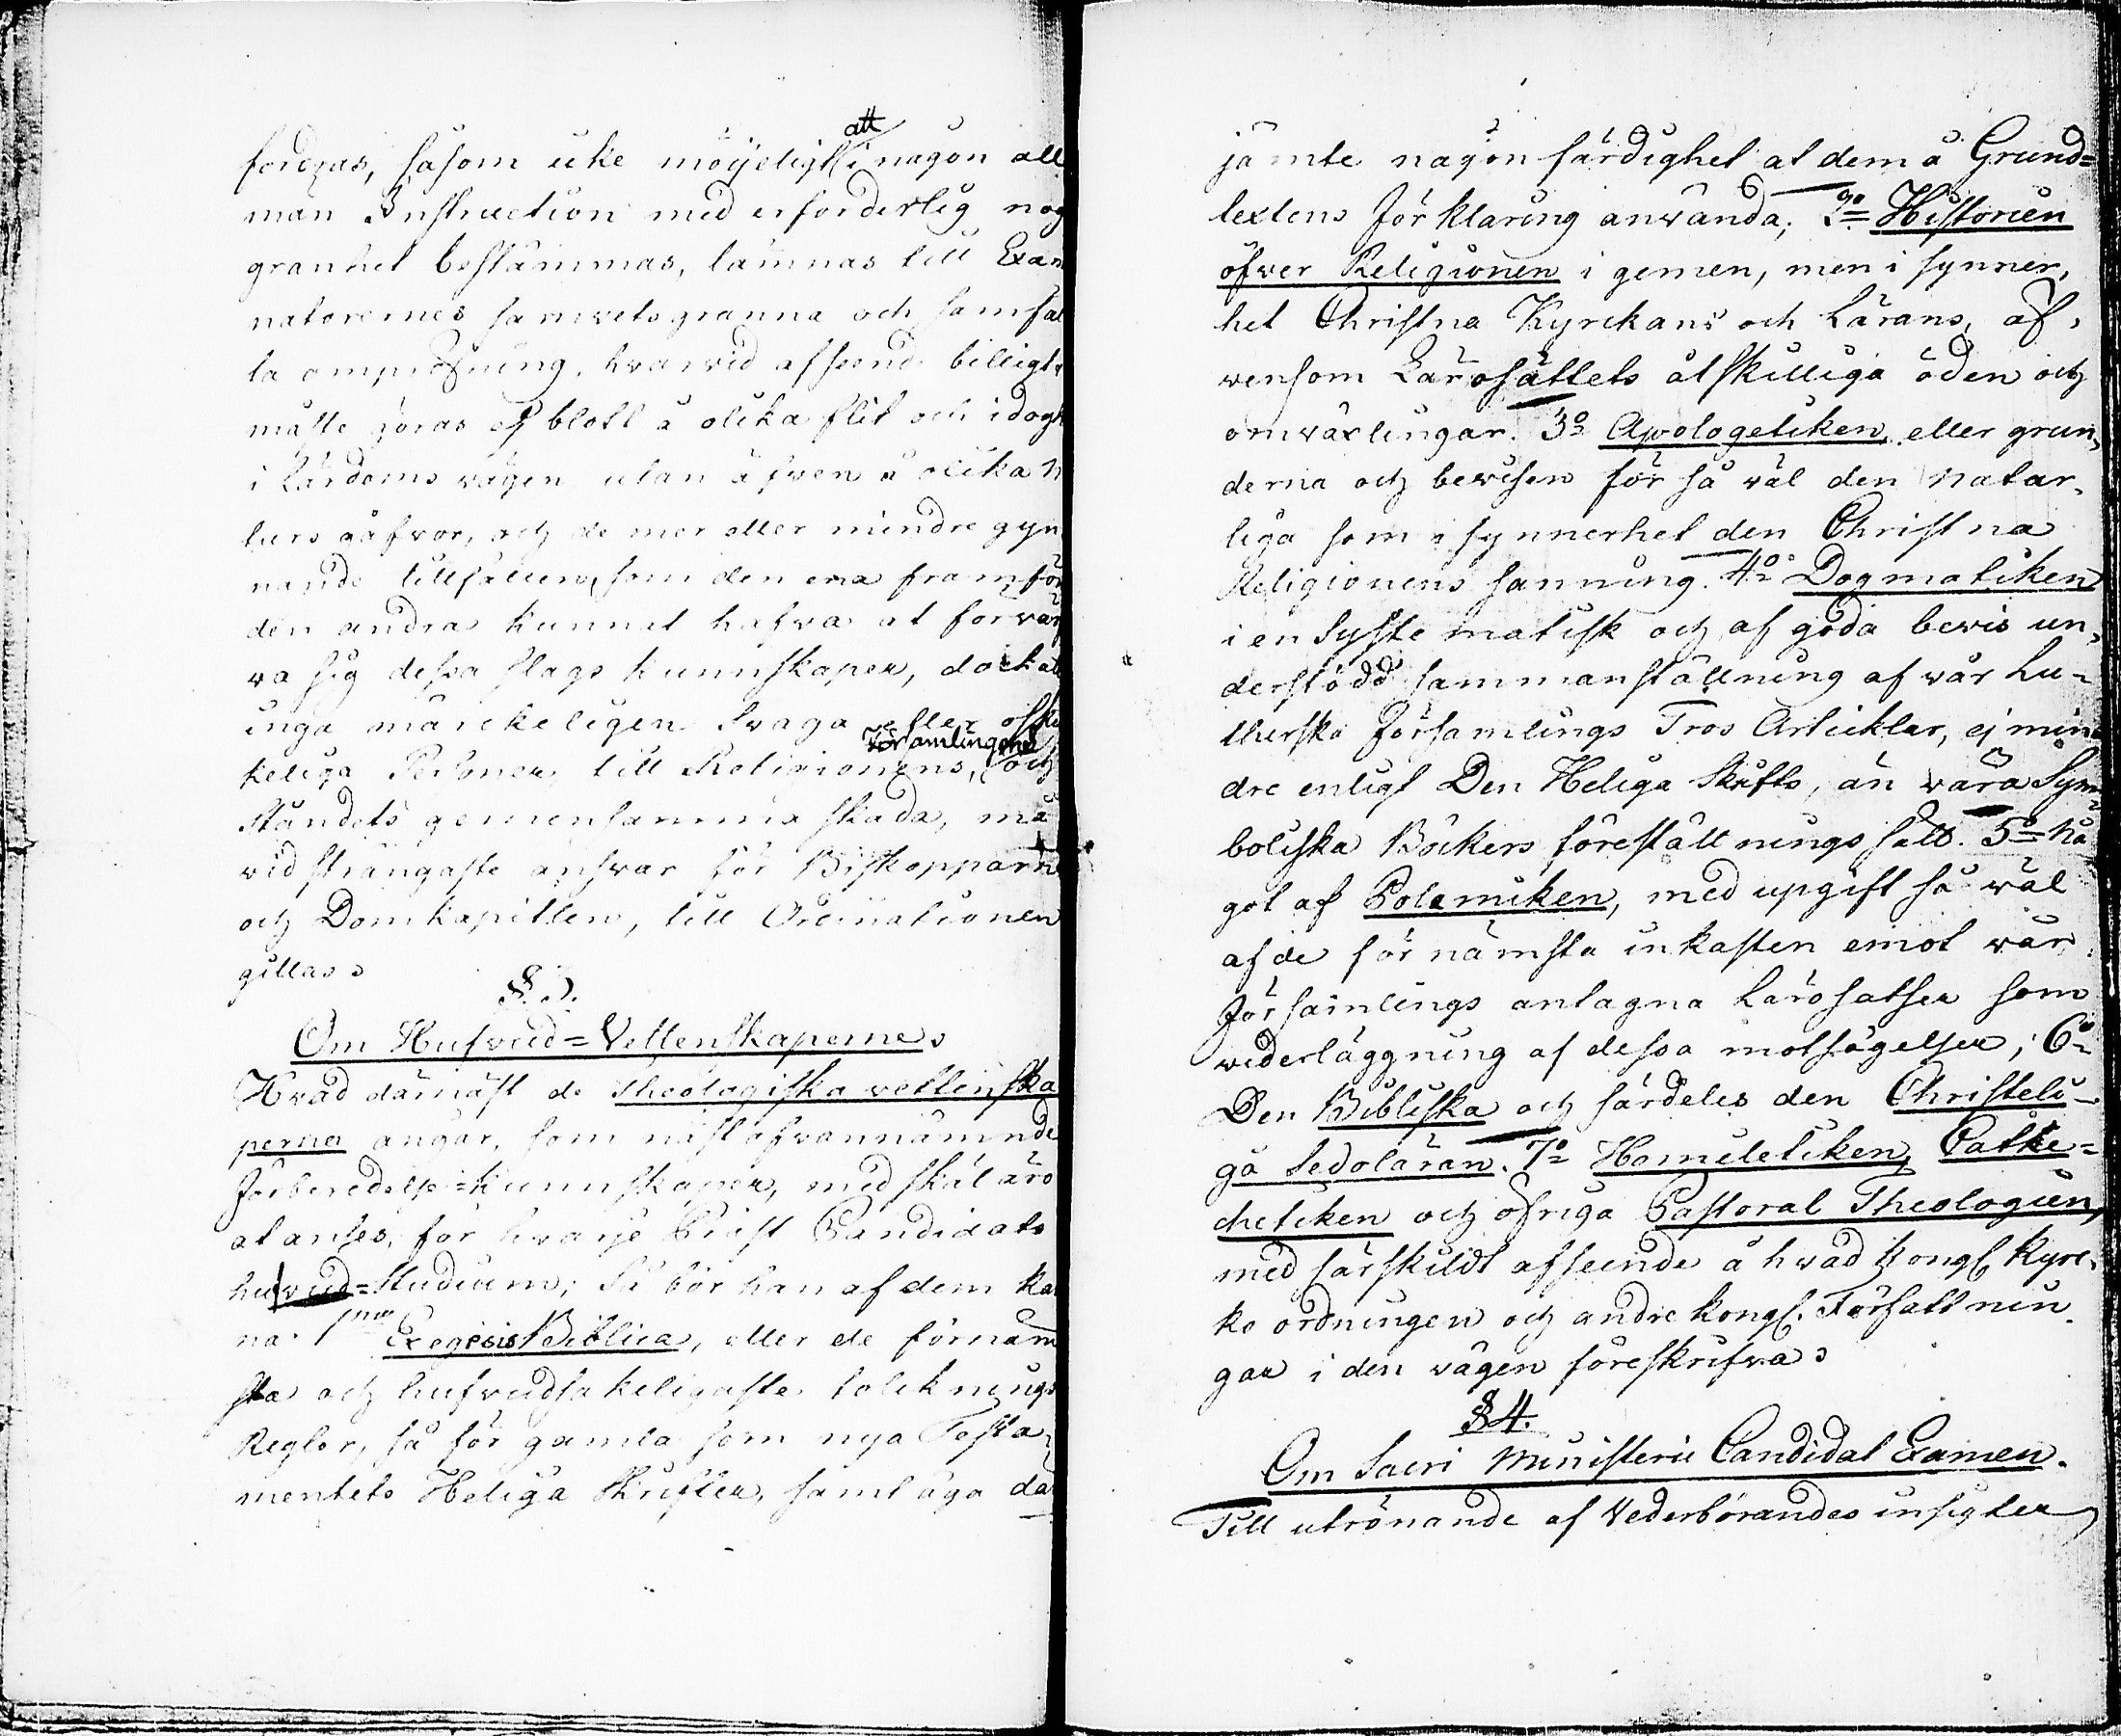 fordras, såsom icke möjeligt att i någon all
män Instruction med erforderlig nog
granhet bestämmas, lämnas till Exam
natorernes samvetsgranna och samfäl
ta ompröfning, hvarvid afseende billigt
måste göras ej blott å olika flit och idogh
i Lärdoms vägen utan äfven å olika n
turs gåfvor, och de mer eller mindre gyn
nande tillfällen, som den ena framför
den andra kunnat hafva at förvär
va sig dessa slags kunnskaper, dock at
inga märckeligen svaga eller oski
keliga Personer till Religionens, Församlingens och
Ståndets gemensamma skada, må
vid strängaste ansvar för Biskopparne
och Domkapitlen, till Ordinationen
gillas.
§. 3.
Om Hufvud=Vettenskaperne.
Hvad därnäst de Theologiska vettenska
perna angår, som näst ofvannämnde
Förberedelse=kunnskaper, med skäl äro
at anses, för hvarje Präst Candidats
hufvud=Studium; Så bör han af dem kän
na: 1mo Exegesis Biblica, eller de förnäm
sta och hufvudsakeligaste tolknings
Regler, så för gamla som nya Testa¬
mentets Heliga Skrifter, samt äga där
jämte någon färdighet at dem å Grund=
textens förklaring använda; 2o Historien
öfver Religionen i gemen, men i synner,
het Christna Kyrckans och Lärans, äf,
vensom Lärosättets åtskilliga öden och
omväxlingar. 3o Apologetiken, eller grun,
derna och bevisen för så väl den natur,
liga som i synnerhet den Christna
Religionens sanning. 4o Dogmatiken
i en Systematisk och af goda bevis un,
derstödd sammanställning af vår Lu¬
therska Församlings Tros Articklar, ej min
dre enligt Den Heliga Skrifts, än våra Sym¬
boliska Böckers föreställningssätt. 5o Nå
got af Polemiken, med upgift så väl
af de förnämsta inkasten emot vår
Församlings antagna Lärosatser som
vederläggning af dessa motsägelser; 6o
Den Bibliska och särdeles den Christeli¬
ga Sedoläran. 7o Homiletiken, Catke=
chetiken och öfriga Pastoral Theologien,
med särskildt afseende å hvad Kongl. Kyrc,
ko ordningen och andre Kongl. Författnin
gar i den vägen föreskrifva.
§ 4.
Om Sacri Ministerii Candidat Examen.
Till utrönande af Vederbörandes insigter